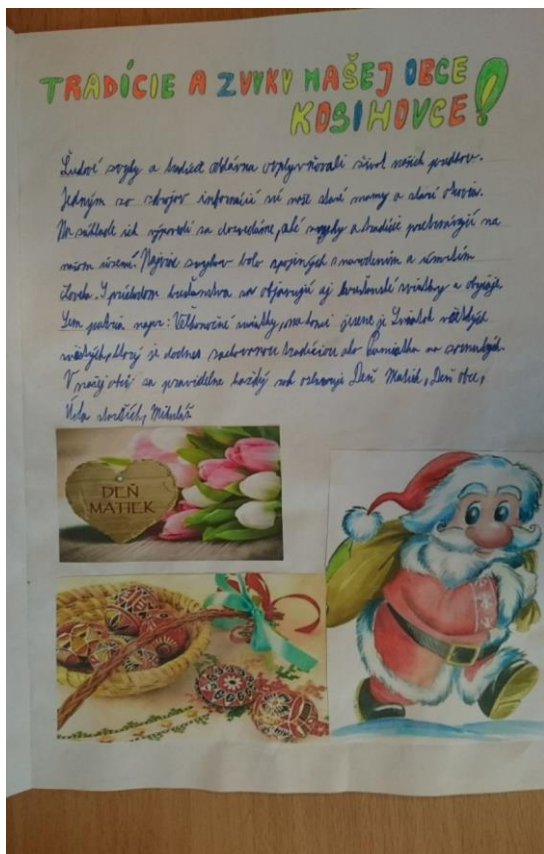 TRADÍCIE A ZVYKY NAŠEJ OBCE
KOSIHOVCE!
Ľudové zvyky a tradície oddávna ovplyvňovali život našich predkov.
Jedným zo zdrojov informácií sú naše staré mamy a starí otcovia.
Na základe ich výpovedí sa dozvedáme, aké zvyky a tradície pretrvávajú na
našom území. Najviac zvykov bolo spojených s narodením a úmrtím
človeka. S príchodom kresťanstva sa objavujú aj kresťanské sviatky a obyčaje.
Sem patria napr: Veľkonočné sviatky, na konci jesene je Sviatok všetkých
svätých, ktorý je dodnes zachovanou tradíciou ako Pamiatka na zosnulých.
V našej obci sa pravidelne každý rok oslavuje Deň Matiek, Deň obce,
Úcta starších, Mikuláš
DEŇ
MATIEK